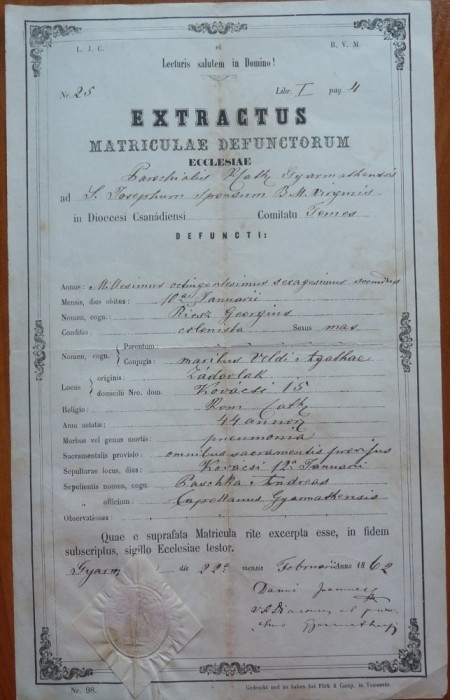 L. J. C. et B. V. M.
Lecturis salutem in Domino!
Nr. 25 Libr. I pag. 4
EXTRACTUS
MATRICULAE DEFUNCTORUM
ECCLESIAE
Parochialis Cath. Gyarmathensis
ad S. Josephum Sponsum B. M. Virginis
in Dioecesi Csanádiensi Comitatu Temes
DEFUNCTI:
Annus: Millesimus octingentesimus sexagesimus secundus
Mensis, dies obitus: 10a Januarii
Nomen, cogn.: Riesz Georgius
Conditio: colonista Sexus mas
Nomen, cogn. Parentum:
Conjugis: maritus Veldi Agathae
Locus originis: Zádorlak
domicilii Nro. dom. Kovácsi 15
Religio: Rom. Cath.
Anno aetatis: 44 annor.
Morbus vel genus mortis: pneumonia
Sacramentalis provisio: omnibus sacramentis provisus
Sepulturae locus, dies: Kovácsi 12a Januarii
Sepelientis nomen, cogn. Paschka Andreas
„ officium: Capellanus Gyarmathensis
Observationes:
Quae e suprafata Matricula rite excerpta esse, in fidem
subscriptus, sigillo Ecclesiae testor.
Gyarm die 22a mensis Februarii Anno 1862
Nr. 98. Gedruckt und zu haben bei Förk & Comp. in Temesvár.